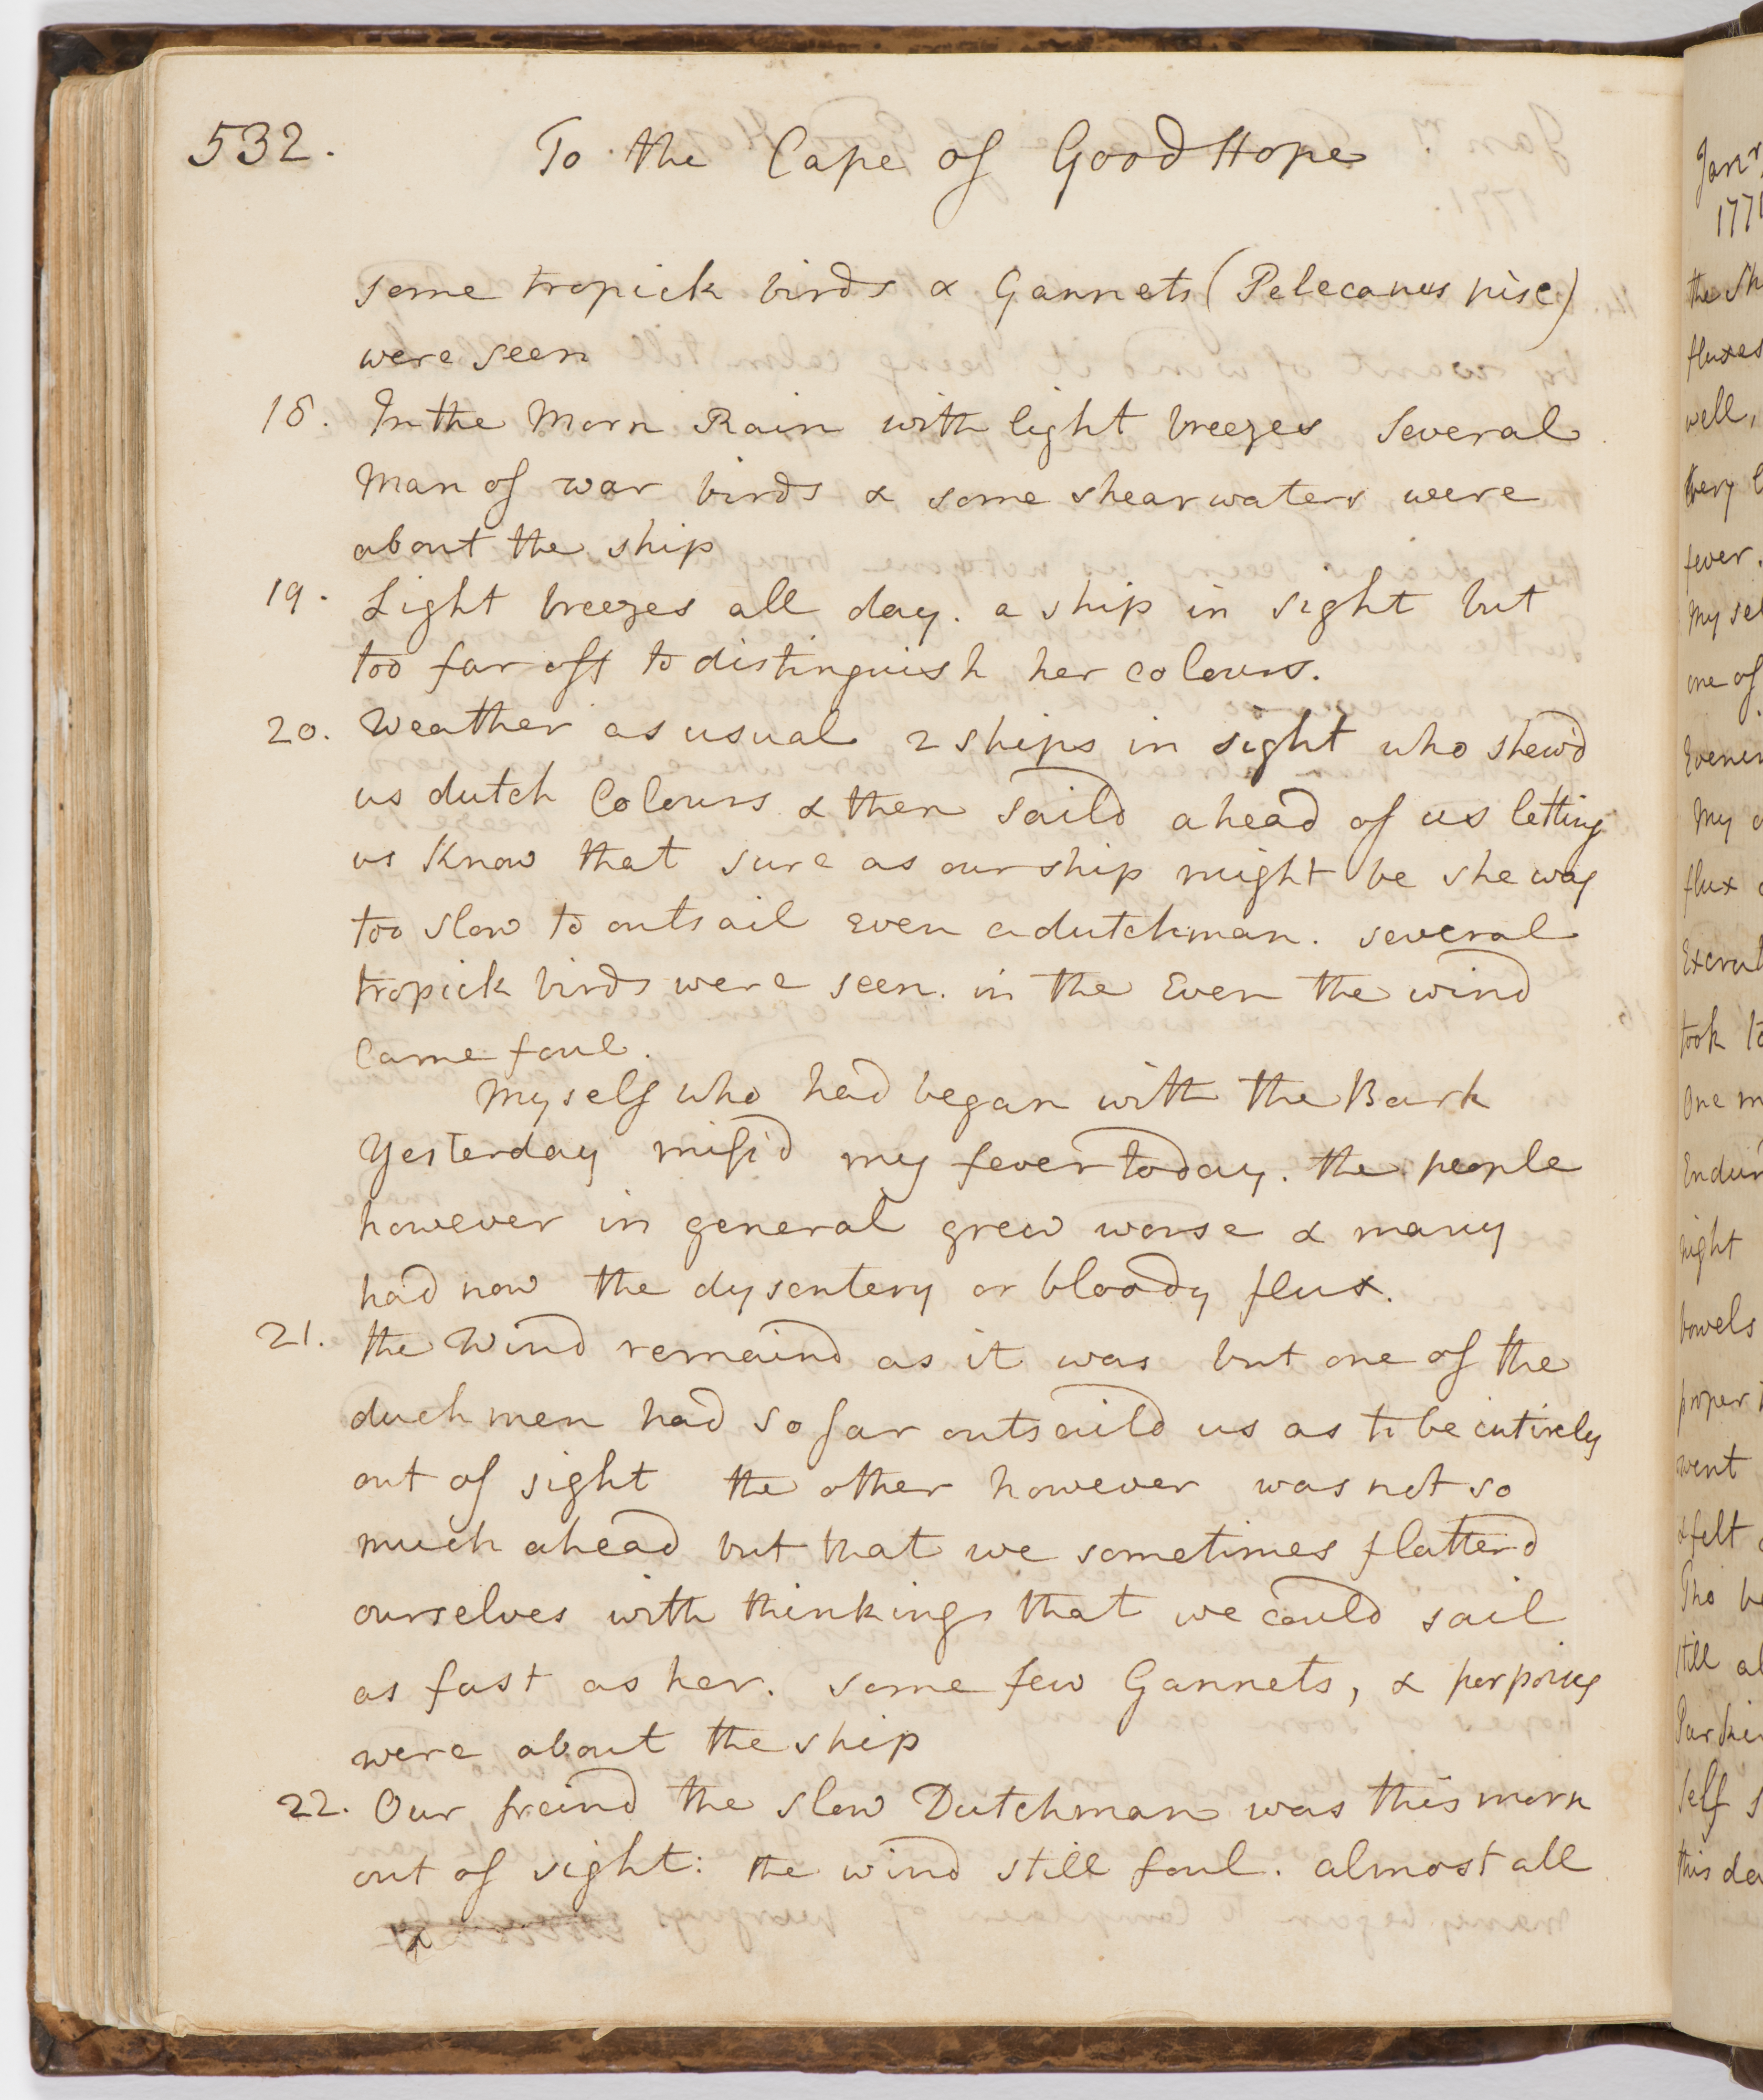 532.
To the Cape of Good Hope
some tropick birds & Gannets (Pelecanus pisc)
were seen
18. In the Morn Rain with light breezes Several
Man of war birds & some shearwaters were
about the ship
19. Light breezes all day. a ship in sight but
too far off to distinguish her colours.
20. Weather as usual 2 ships in sight who shew'd
us dutch Colours & then saild ahead of us letting
us Know that sure as our ship might be she was
too slow to outsail Even a dutchman. several
tropick birds were seen. in the Even the wind
came foul.
Myself who had began with the Bark
Yesterday miss'd my fever today. the people
however in general grew worse & many
had now the dysentery or bloody flux.
21. the Wind remaind as it was but one of the
duchmen had so far outsaild us as to be entirely
out of sight the other however was not so
much ahead but that we sometimes flatterd
ourselves with thinking that we could sail
as fast as her. some few Gannets, & porpoises
were about the ship
22. Our freind the slow Dutchman was this morn
out of sight: the wind still foul. almost all
Janry
177
the Sh
fluxes
well,
fever.
My sel
one of
Evenin
My
flux
Excru
took to
One m
Endur
night
bowels
proper
went
& felt
Tho be
still al
Parkin
self s
this da